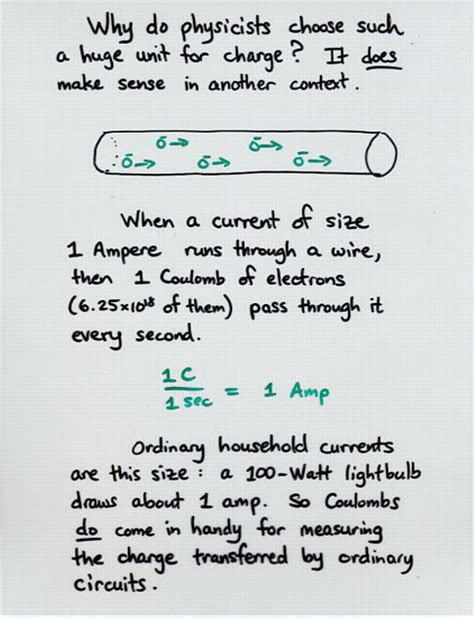 Why do physicists choose such
a huge unit for charge? It does
make sense in another context.
ō→ ō→ ō→
ō→ ō→
When a current of size
1 Ampere runs through a wire,
then 1 Coulomb of electrons
(6.25×10¹⁸ of them) pass through it
every second.
1 C
1 sec = 1 Amp
Ordinary household currents
are this size : a 100-Watt lightbulb
draws about 1 amp. So Coulombs
do come in handy for measuring
the charge transferred by ordinary
circuits.